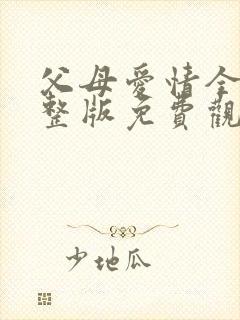 父母愛情全
整版免費觀
少地瓜